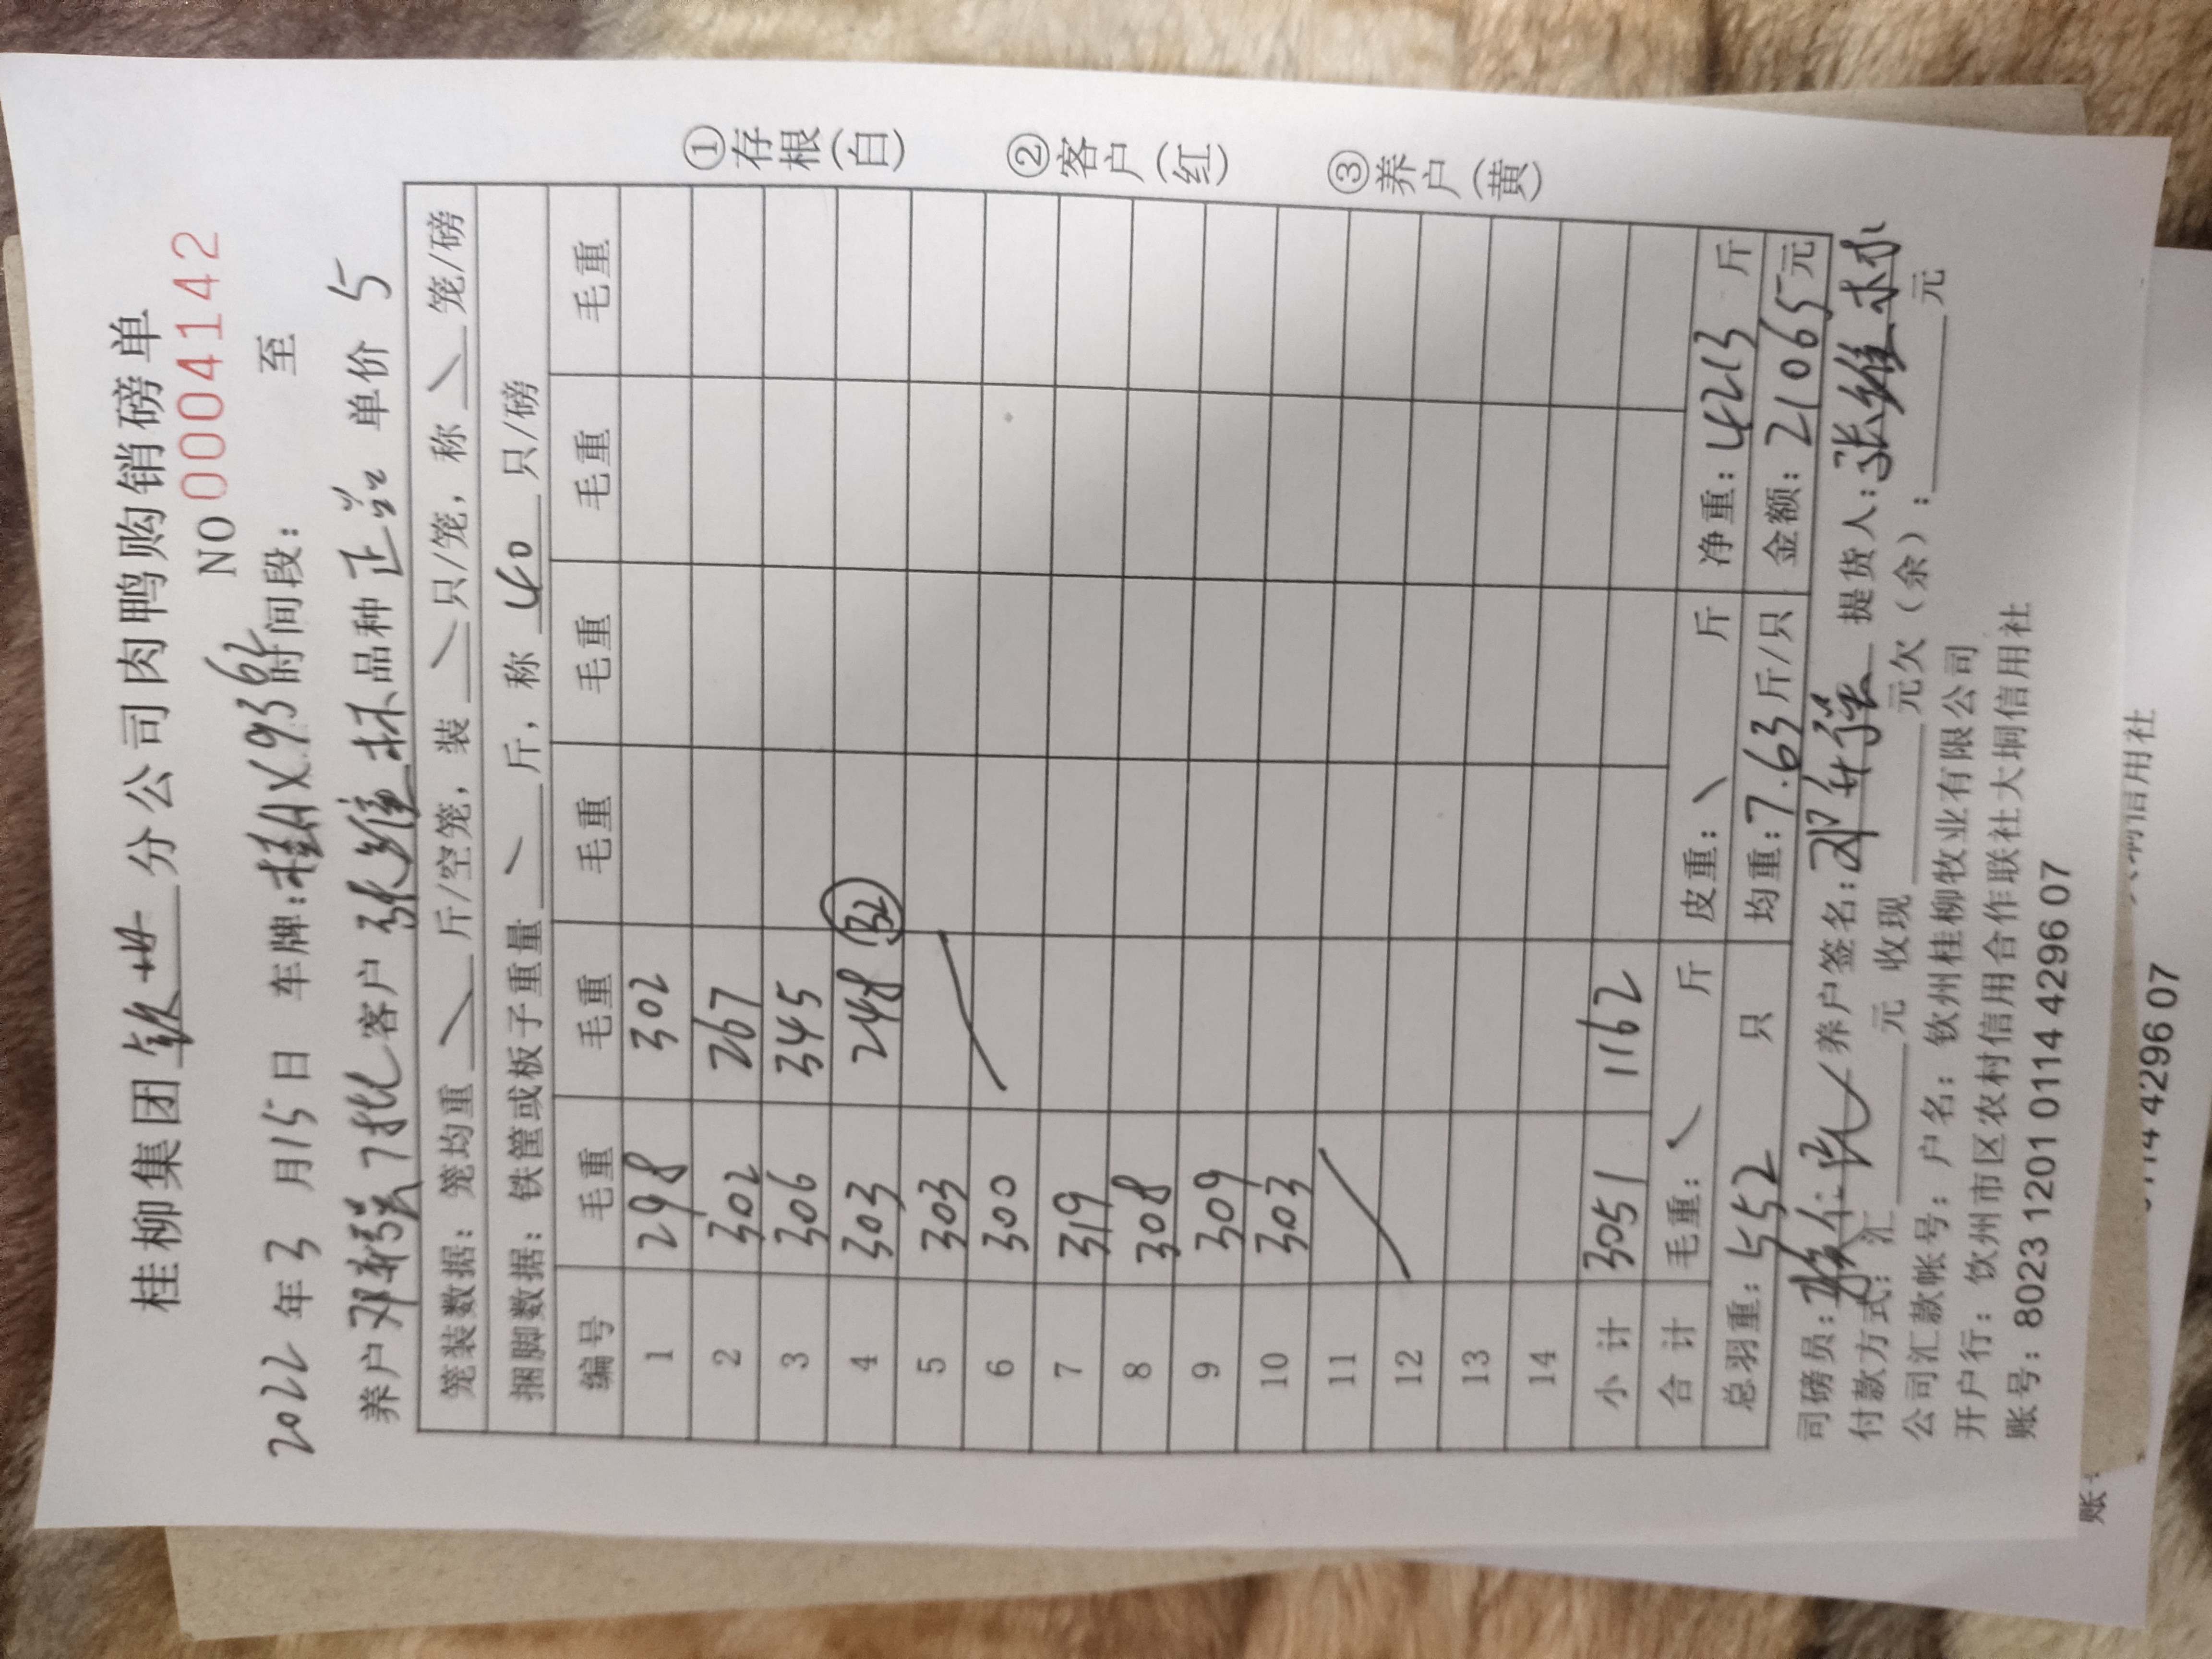 桂柳集团钦州分公司肉鸭购销磅单
NO 0004142
2022年3月15日 车牌:桂AX9362时间段: 至
养户邓 强7批客户张维林品种正品单价5
笼装数据: 笼均重\斤/空笼, 装\只/笼, 称\笼/磅
捆脚数据: 铁筐或板子重量\斤, 称40只/磅
编号 毛重 毛重 毛重 毛重 毛重 毛重
1 298 302
2 302 267
3 306 345
4 303 248 32
5 303
6 300
7 319
8 308
9 309
10 303
11
12
13
14
小计 3051 1162
合计 毛重:\斤 皮重:\斤 净重:4213斤
总羽重:552只 均重:7.63斤/只 金额:21065元
司磅员: 养户签名:邓 强 提货人:张维林
付款方式:汇 元 收现 元欠(余): 元
公司汇款帐号: 户名: 钦州桂柳牧业有限公司
开户行: 钦州市区农村信用合作联社大垌信用社
账号: 8023 1201 0114 4296 07
①存根(白) ②客户(红) ③养户(黄)
信用社
账
0114 4296 07